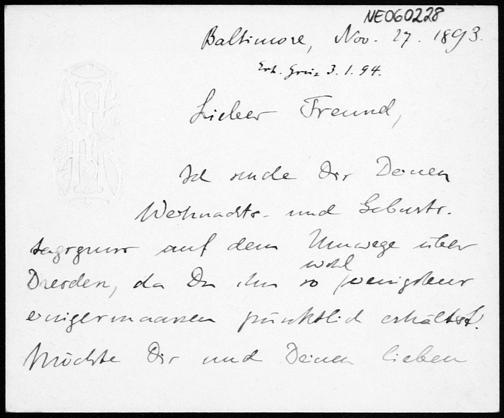 NE060228
Baltimore, Nov. 27. 1893.
Erh. Greiz 3.1.94.
Lieber Freund,
Ich sende Dir Deinen
Weihnachts- und Geburts-
tagsgruss auf dem Umwege über
wohl
Dresden, da Du ihn so wenigstens
einigermaassen pünktlich erhältst.
Möchte Dir und Deinen lieben